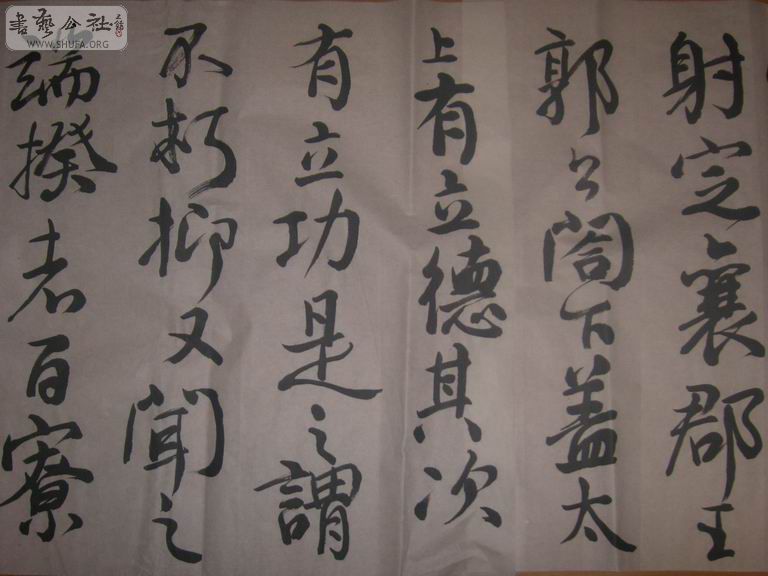 射定襄郡王
郭公閤下盖太
上有立德其次
有立功是之謂
不朽抑又聞之
端揆者百寮
書藝公社
WWW.SHUFA.ORG